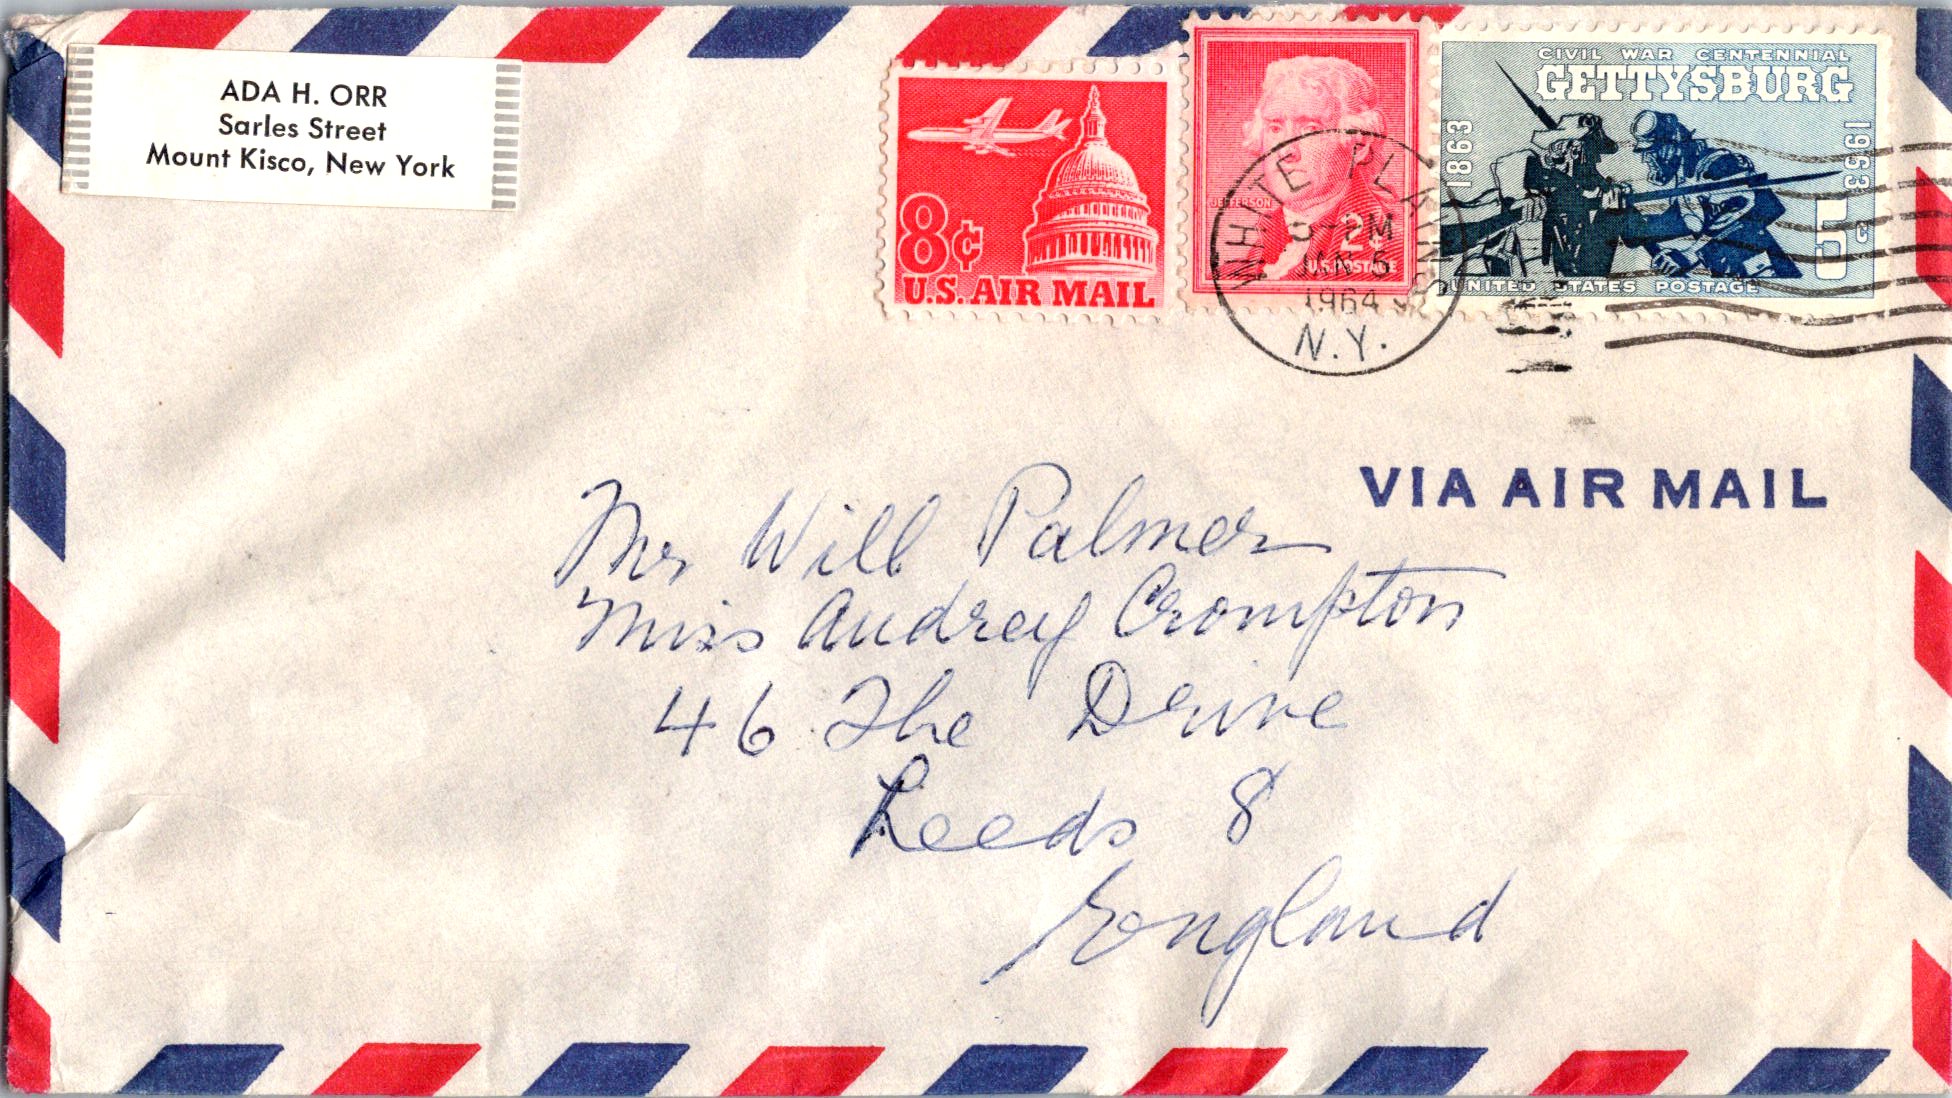 ADA H. ORR
Sarles Street
Mount Kisco, New York
8¢
U.S. AIR MAIL
JEFFERSON
2¢
U.S. POSTAGE
CIVIL WAR CENTENNIAL
GETTYSBURG
1863
1963
5c
UNITED STATES POSTAGE
WHITE PLAINS
PM
JAN 5
1964
N.Y.
VIA AIR MAIL
Mr Will Palmer
Miss Audrey Crompton
46 The Drive
Leeds 8
England